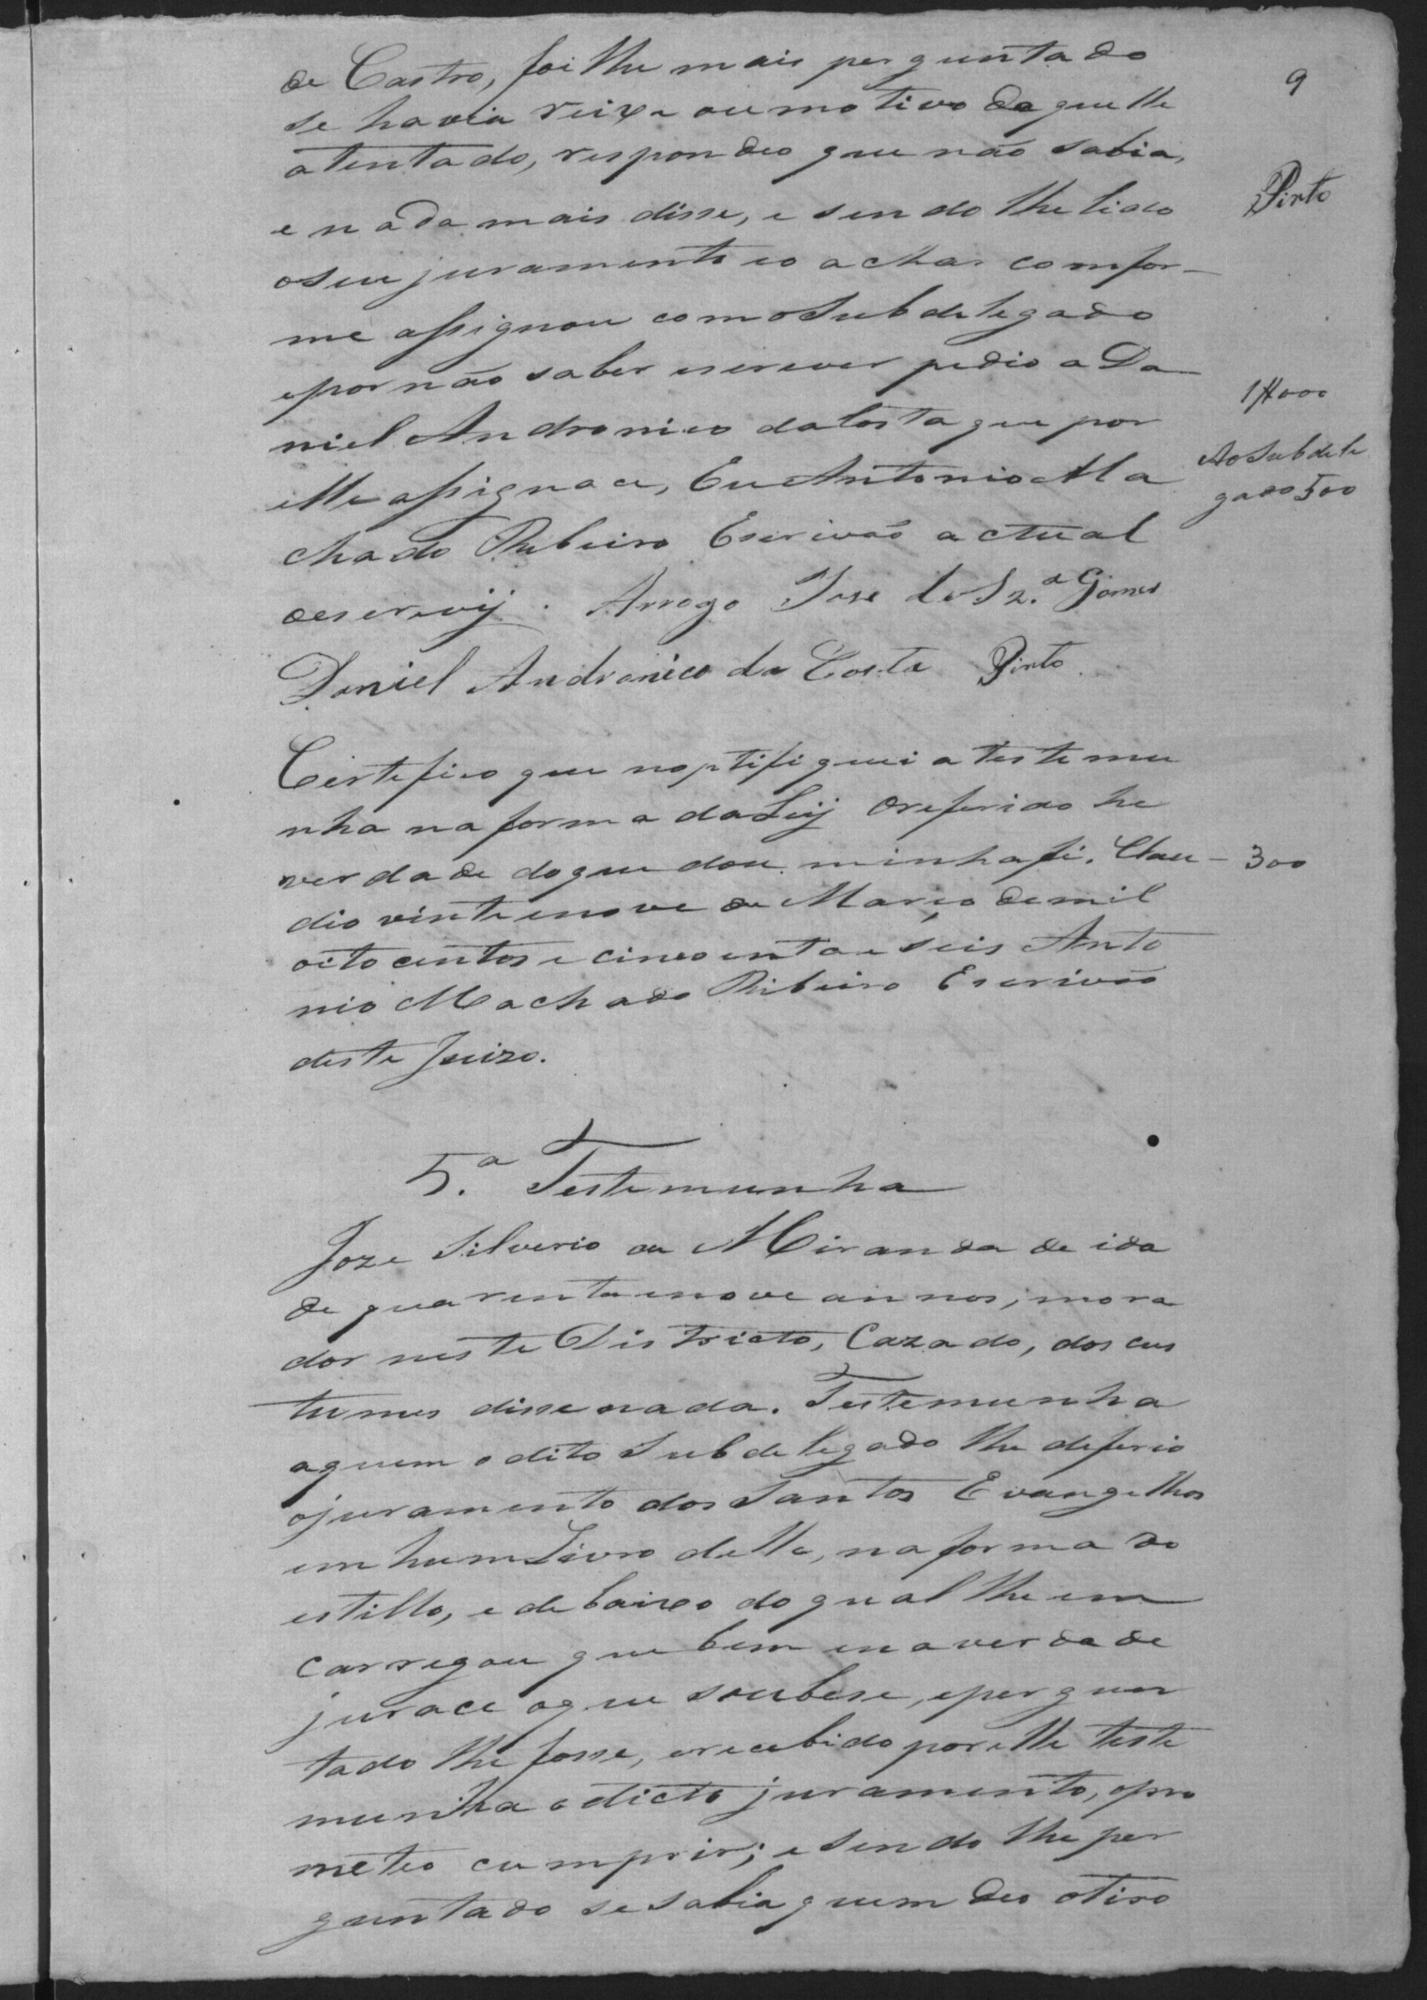 9
Pinto
de Castro, foi lhe mais perguntado
se havia reixa ou motivo daquelle
atentado, respondeo que não sabia,
e nada mais disse, e sendo lhe lido
o seu juramento eo achar comfor-
me assignou com o Subdelegado
epor não saber escrever pedio a Da
niel Andronico da Costa que por
elle assignace, Eu Antonio Ma
1$000
Ao Subdele
gado 500
chado Ribeiro Escrivão actual
oescrevij. Arrogo José de Sz.ª Gomes
Daniel Andronico da Costa Pinto
Certefico que noptifiquei a testemu
nha na forma da Leij Oreferido he
verdade doque dou minha fé. Clau- 300
dio vinte enove de Março de mil
oito centos e cincoenta e seis Anto
nio Machado Ribeiro Escrivão
deste Juizo.
5.ª Testemunha
Joze Silverio de Miranda de ida
de quarenta enove annos, mora
dor neste Districto, Cazado, dos cus
tumes disse nada. Testemunha
aquem o dito Subdelegado lhe deferio
ojuramento dos Santos Evangelhos
em hum Livro delle, na forma do
estillo, e debaixo do qual lhe em
carregou que bem ena verdade
jurace oque soubese, epergun
tado lhe fosse, erecebido por elle teste
munha o dicto juramento, opro
meteo cumprir; e sendo lhe per
guntado se sabia quem deo otiro